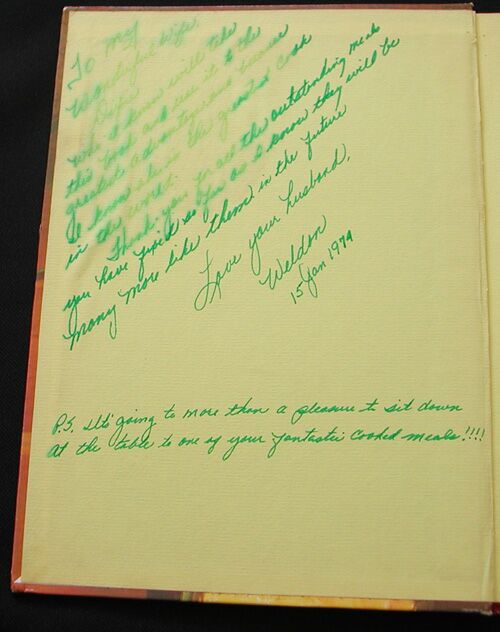 To my
Wonderful Wife,
who I know will take
this book and use it to the
greatest advantage and because
I know she is the greatest cook
in the world.
Thank you for all the outstanding meals
you have fixed so far as I know they will be
many more like them in the future
Love your husband,
Weldon
15 Jan 1974
P.S. It's going to more than a pleasure to sit down
at the table to one of your fantastic cooked meals!!!!